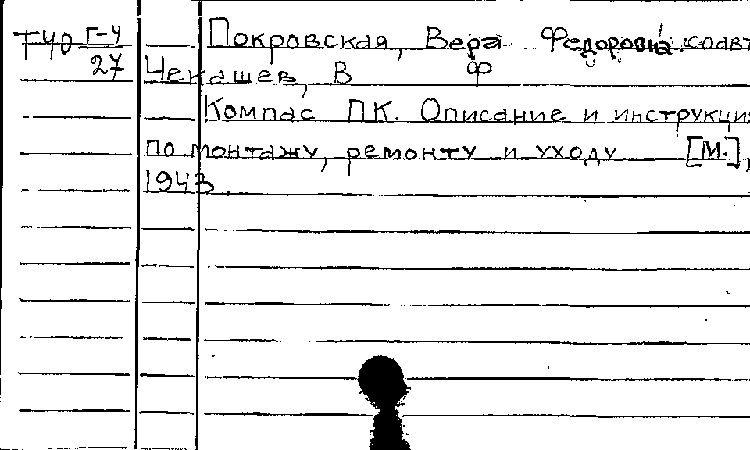 Т40 Г-4 Покровская, Вера Федоровна соавт
27 Чекашев, В Ф
Компас ПК. Описание и инструкция
по монтажу, ремонту и уходу [М.],
1943.